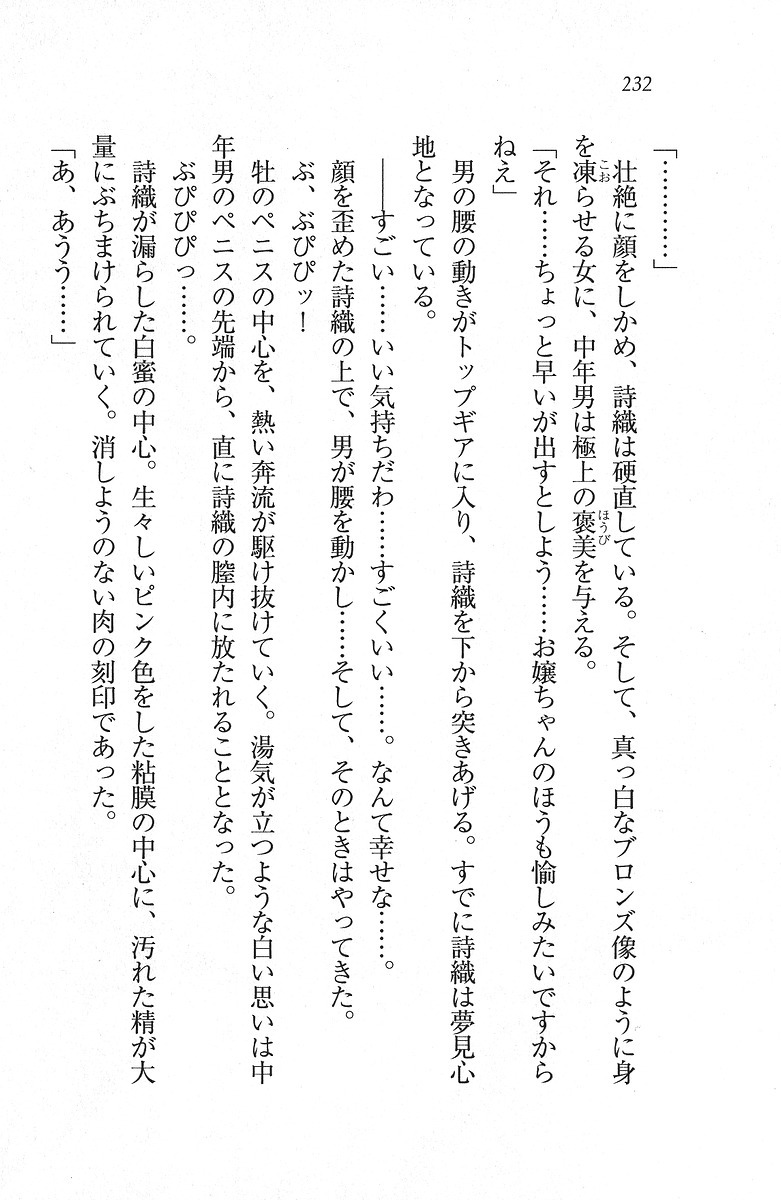 232
「…………」
　壮絶に顔をしかめ、詩織は硬直している。そして、真っ白なブロンズ像のように身
を凍らせる女に、中年男は極上の褒美を与える。
「それ……ちょっと早いが出すとしよう……お嬢ちゃんのほうも愉しみたいですから
ねえ」
　男の腰の動きがトップギアに入り、詩織を下から突きあげる。すでに詩織は夢見心
地となっている。
　――すごい……いい気持ちだわ……すごくいい……。なんて幸せな……。
　顔を歪めた詩織の上で、男が腰を動かし……そして、そのときはやってきた。
　ぶ、ぶぴぴッ！
　牡のペニスの中心を、熱い奔流が駆け抜けていく。湯気が立つような白い思いは中
年男のペニスの先端から、直に詩織の膣内に放たれることとなった。
　ぶぴぴぴっ……。
　詩織が漏らした白蜜の中心。生々しいピンク色をした粘膜の中心に、汚れた精が大
量にぶちまけられていく。消しようのない肉の刻印であった。
「あ、あうう……」